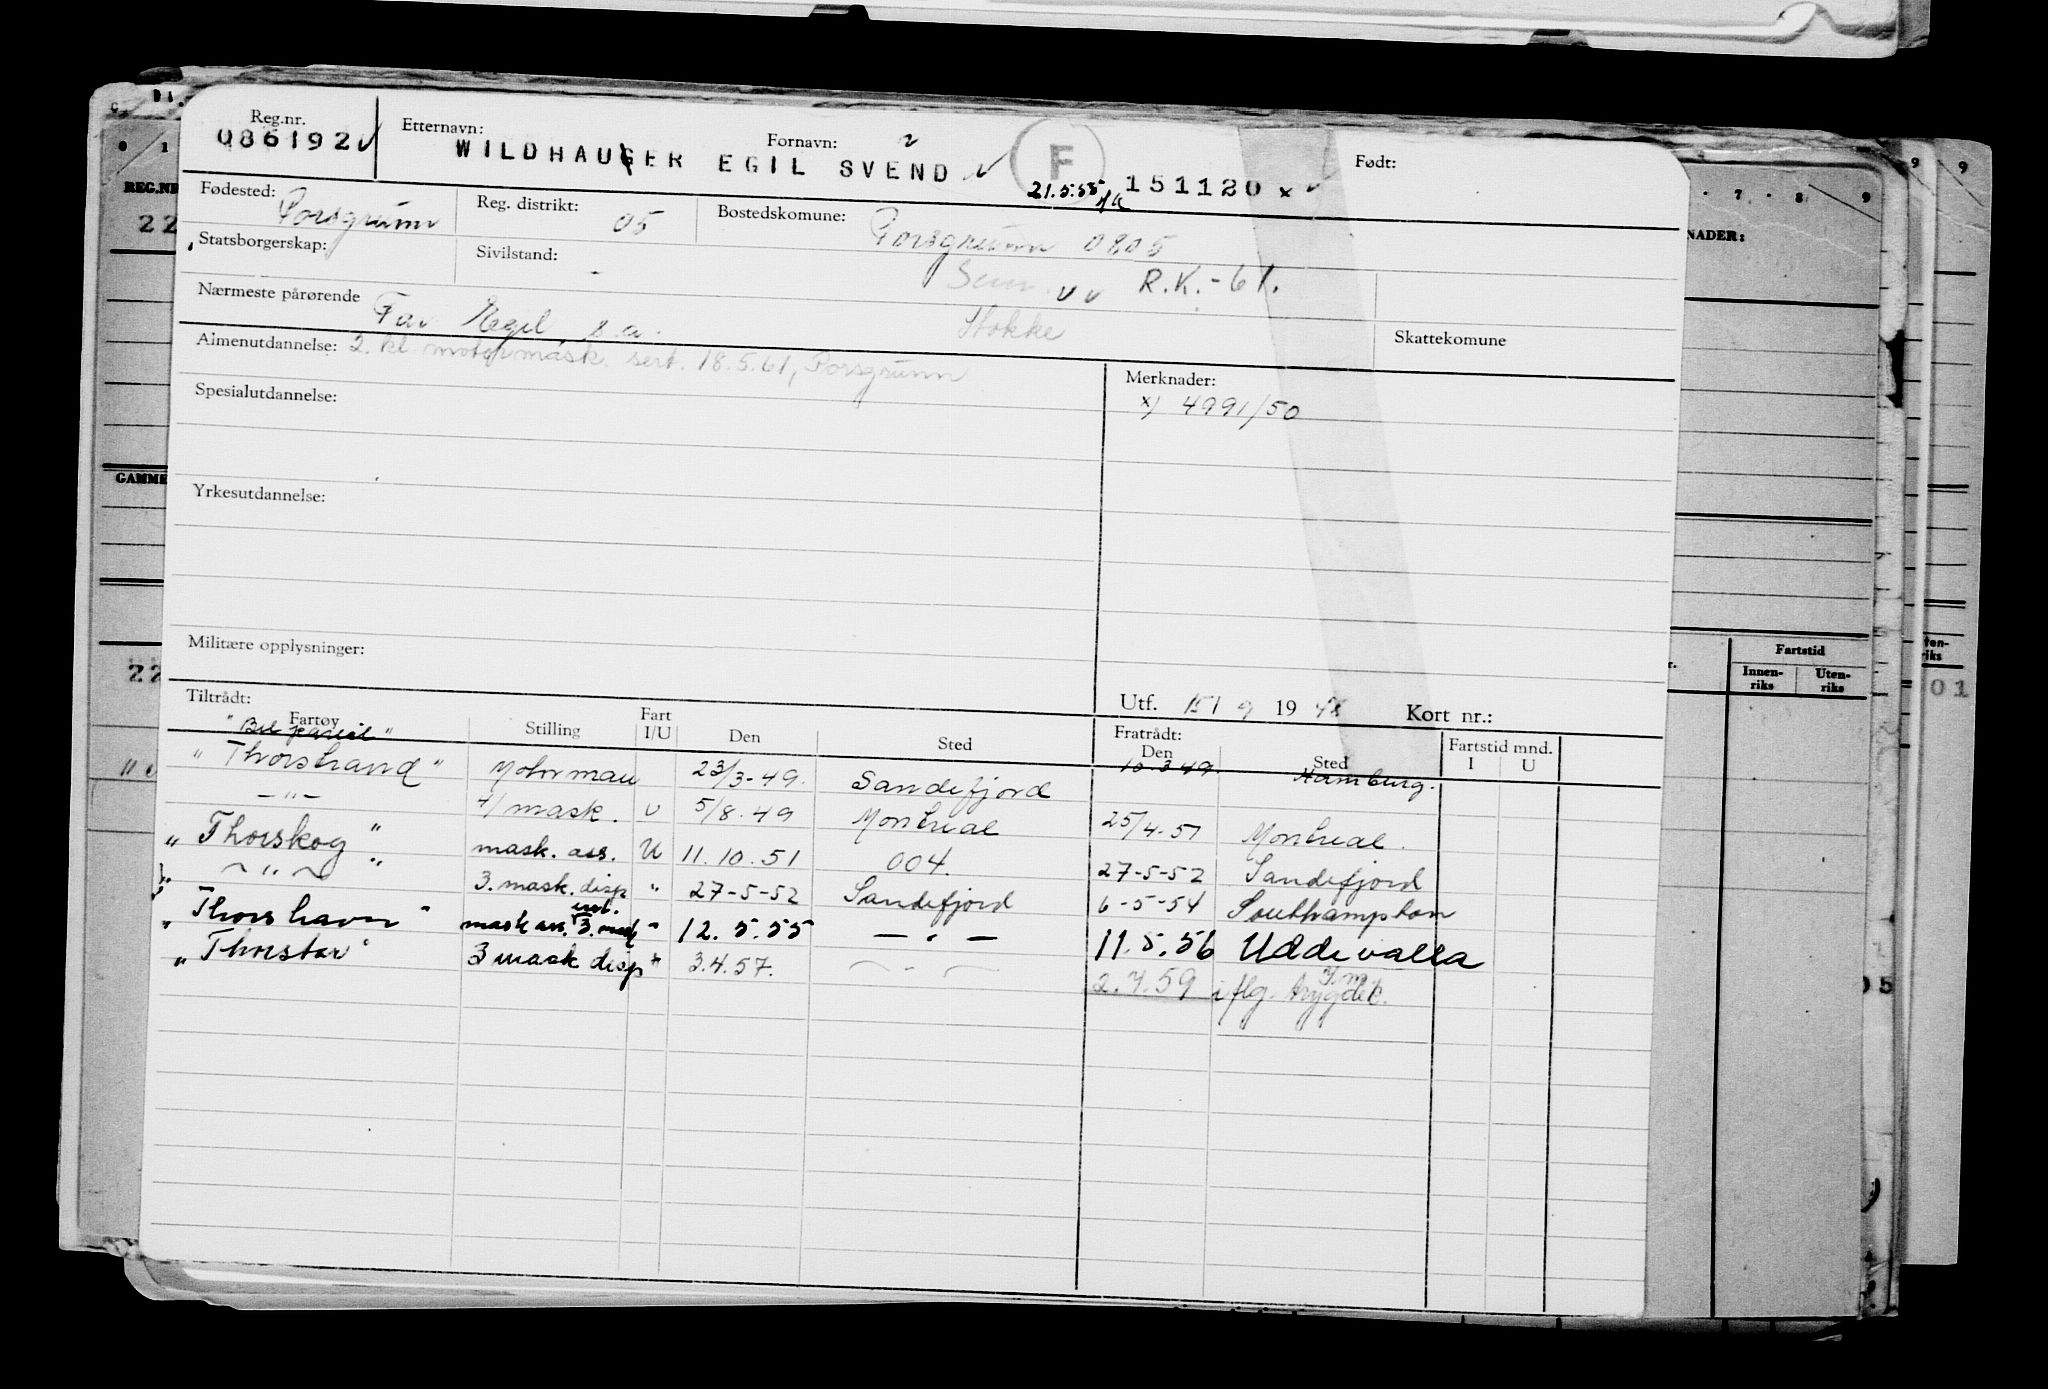 Reg.nr. Etternavn: Fornavn: Født:
086192 WILDHAUGER EGIL SVEND F 151120 x
21.5.55
Fødested: Porsgrunn Reg. distrikt: 05 Bostedskomune: Porsgrunn 0805
Statsborgerskap: Sivilstand: - Sem R.K.-61.
Nærmeste pårørende Far Egil s.a. Stokke Skattekomune
Almenutdannelse: 2. kl. motormask. sert. 18.5.61, Porsgrunn
Merknader:
x) 4991/50
Spesialutdannelse:
Yrkesutdannelse:
Militære opplysninger:
Tiltrådt: Utf. 15/9 1948 Kort nr.:
Fartøy Stilling Fart I/U Den Sted Fratrådt: Den Sted Fartstid mnd. I U
"Bel " 10.3.49. Hamburg.
"Thorstrand" Motorman 23/3-49. Sandefjord
-"- 4/mask. U 5/8.49 Montreal 25/4-51 Montreal.
"Thorskog" mask. ass. U 11.10.51 004. 27-5-52 Sandefjord
-"- 3. mask. disp " 27-5-52 Sandefjord 6-5-54 Southampton
"Thorshavn" mask ass. 3. mask " 12.5.55 -"- 11.5.56 Uddevalla
"Thorstar" 3 mask disp " 3.4.57. -"- 2.7.59 i flg. trygdek.
REG.NR
22
GAMME
22
NADER:
Fartstid
Innen-riks Uten-riks
01
05